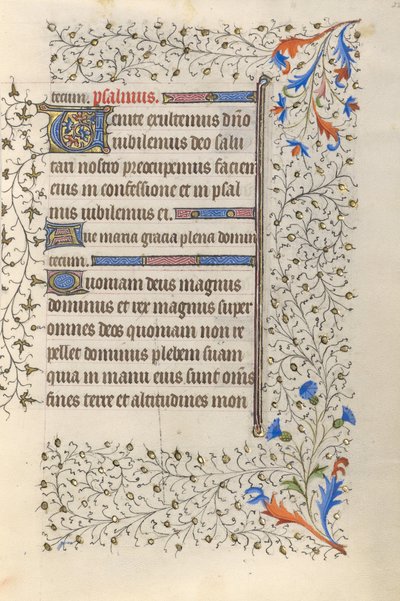 tecum. psalmus.
Venite exultemus dno
iubilemus deo salu
tari nostro preocupemus faciem
eius in confessione et in psal
mis iubilemus ei.
Aue maria gracia plena domin
tecum.
Quoniam deus magnus
dominus et rex magnus super
omnes deos quoniam non re
pellet dominus plebem suam
quia in manu eius sunt oms
fines terre et altitudines mon